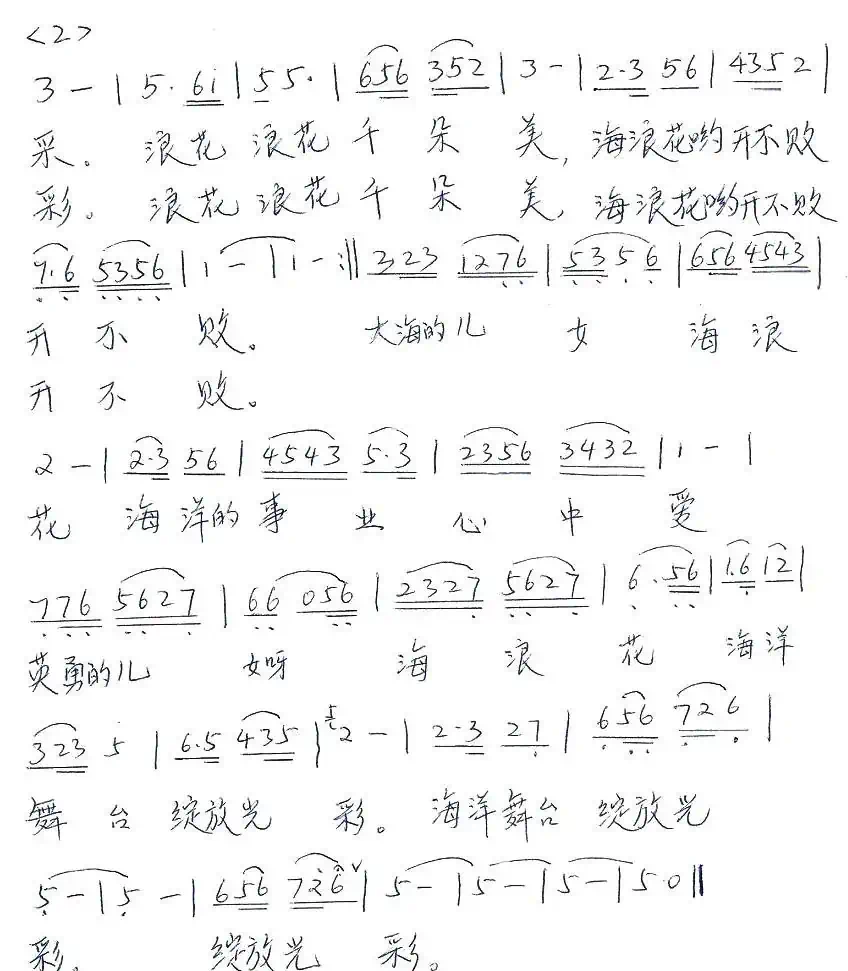 <2>
3 - | 5. 6i | 5 5. | 656 352 | 3 - | 2.3 56 | 435 2 |
采。 浪花 浪花 千 朵 美, 海浪花哟开不败
彩。 浪花 浪花 千 朵 美, 海浪花哟开不败
7.6 5356 | 1 - | 1 - :|| 323 1276 | 5356 | 656 4543 |
开 不 败。 大海的儿 女 海 浪
开 不 败。
2 - | 2.3 56 | 4543 5.3 | 2356 3432 | 1 - |
花 海 洋的 事 业 心 中 爱
776 5627 | 66 056 | 2327 5627 | 6.56 | 1.6 12 |
英勇的儿 女呀 海 浪 花 海洋
323 5 | 6.5 435 | 5 2 - | 2.3 27 | 656 726 |
舞 台 绽放光 彩。 海洋舞台 绽放光
5 - | 5 - | 656 726 ∨ | 5 - | 5 - | 5 - | 5 0 ||
彩. 绽放光 彩。